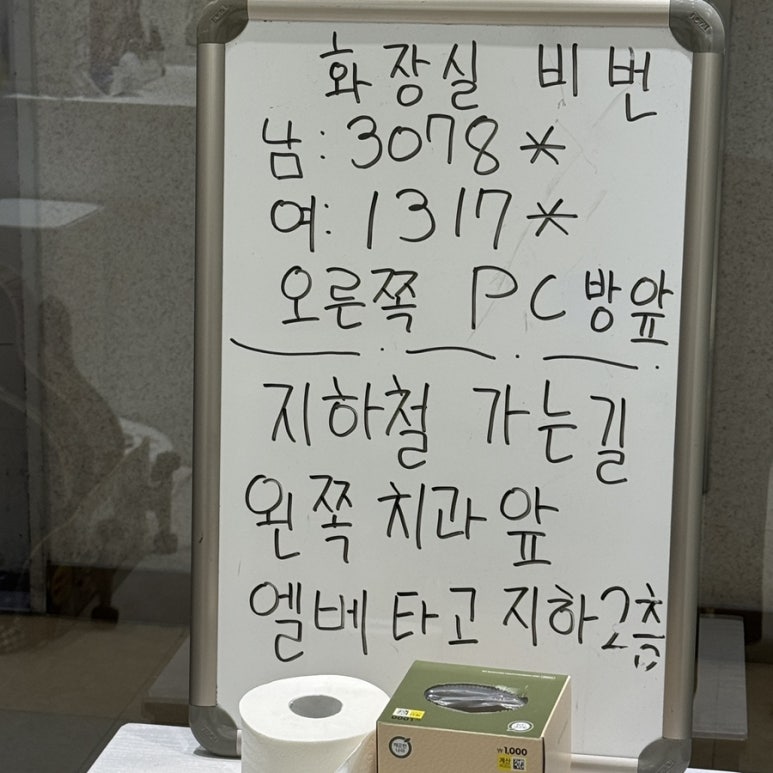 화장실 비번
남: 3078*
여: 1317*
오른쪽 PC방앞
지하철 가는길
왼쪽 치과앞
엘베 타고 지하2층
₩1,000